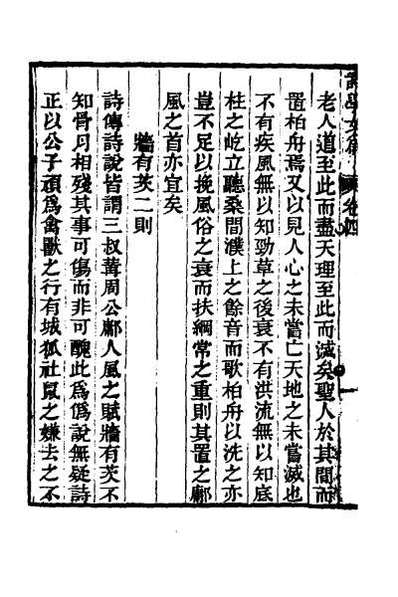 卷四
老人道至此而盡天理至此而滅矣聖人於其間而
置柏舟焉又以見人心之未嘗亡天地之未嘗滅也
不有疾風無以知勁草之後衰不有洪流無以知底
柱之屹立聽桑間濮上之餘音而歌柏舟以洗之亦
豈不足以挽風俗之衰而扶綱常之重則其置之鄘
風之首亦宜矣
牆有茨二則
詩傳詩說皆謂三叔冓周公鄘人風之賦牆有茨不
知骨肉相殘其事可傷而非可醜此爲僞說無疑詩
正以公子頑爲禽獸之行有城狐社鼠之嫌去之不